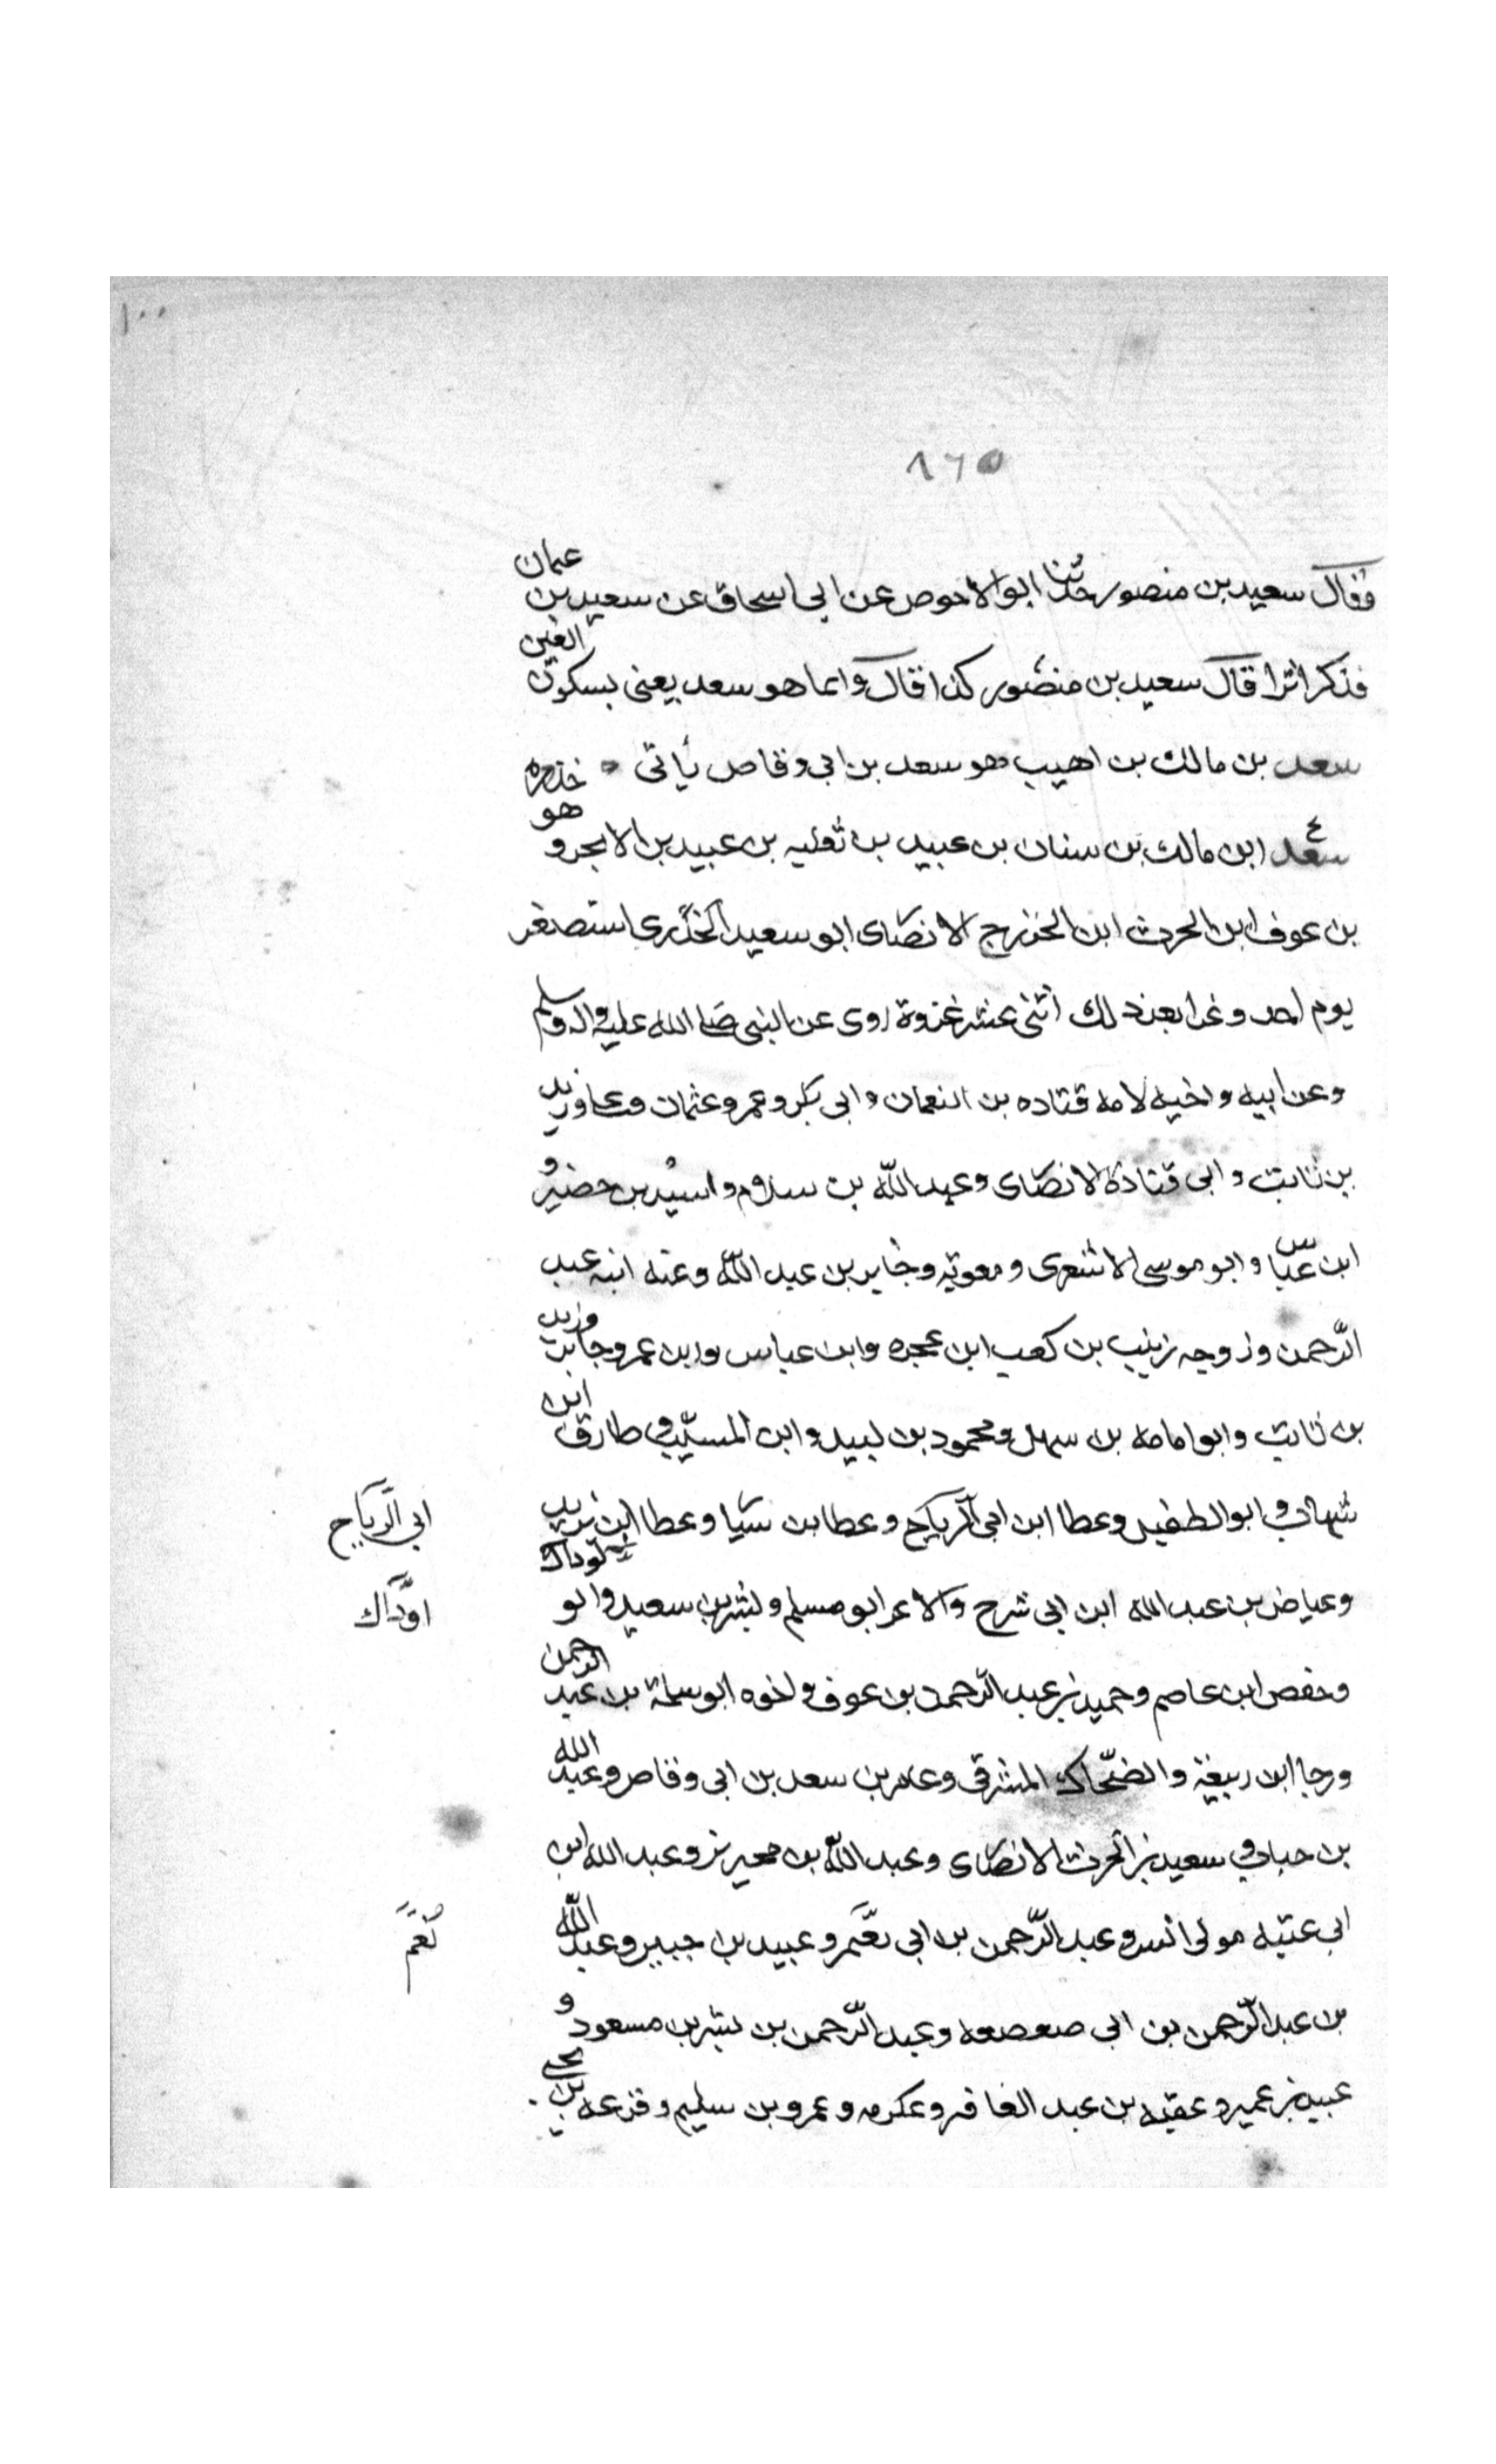 ١٠٠
١٦٥
فقال سعيد بن منصور حدثنا ابو الاحوص عن ابى اسحاق عن سعيد بن عمان
فذكر اثرا قال سعيد بن منصور كذا قال وانما هو سعد يعنى بسكون العين
سعد بن مالك بن اهيب هو سعد بن ابى وقاص ياتى
سعد ابن مالك بن سنان بن عبيد بن ثعلبه بن عبيد بن الابجر وهو خدره
بن عوف ابن الحرث ابن الخزرج الانصارى ابو سعيد الخدرى استصغر
يوم احد وغزا بعد ذلك اثنى عشر غزوة روى عن النبى صلى الله عليه واله وسلم
وعن ابيه واخيه لامه قتاده بن النعمان وابى بكر وعمر وعثمان وعلى وزيد
بن ثابت وابى قتادة الانصارى وعبد الله بن سلام واسيد بن حضير و
ابن عباس وابو موسى الاشعرى ومعوية وجابر بن عبد الله وعنه ابنه عبد
الرحمن وزوجه زينب بن كعب ابن عجره وابن عباس وابن عمر وجابر وزيد
بن ثابت وابو امامه بن سهل ومحمود بن لبيد وابن المسيب وطارق ابن
شهاب وابو الطفيل وعطا ابن ابى الرباح وعطا بن يسار وعطا ابن يزيد
ابى الرباح
وعياض بن عبد الله ابن ابى سرح والاغر ابو مسلم وبشر بن سعيد وابو لوداك
اودّاك
وحفص ابن عاصم وحميد بن عبد الرحمن بن عوف واخوه ابو سلمة بن عبد الرحمن
ورجا ابن ربيعة والضحّاك المشرقى وعامر بن سعد بن ابى وقاص وعبد الله
بن خباب وسعيد بن الحرث الانصارى وعبد الله بن محيريز وعبد الله ابن
ابى عتبه مولى انس وعبد الرحمن بن ابى نعم وعبيد بن جبير وعبد الله
نعم
بن عبد الرحمن بن ابى صعصعه وعبد الرحمن بن بشر بن مسعود و
عبيد بن عمير وعقبه بن عبد الغافر وعكرمه وعمرو بن سليم وقزعه بن يحيى